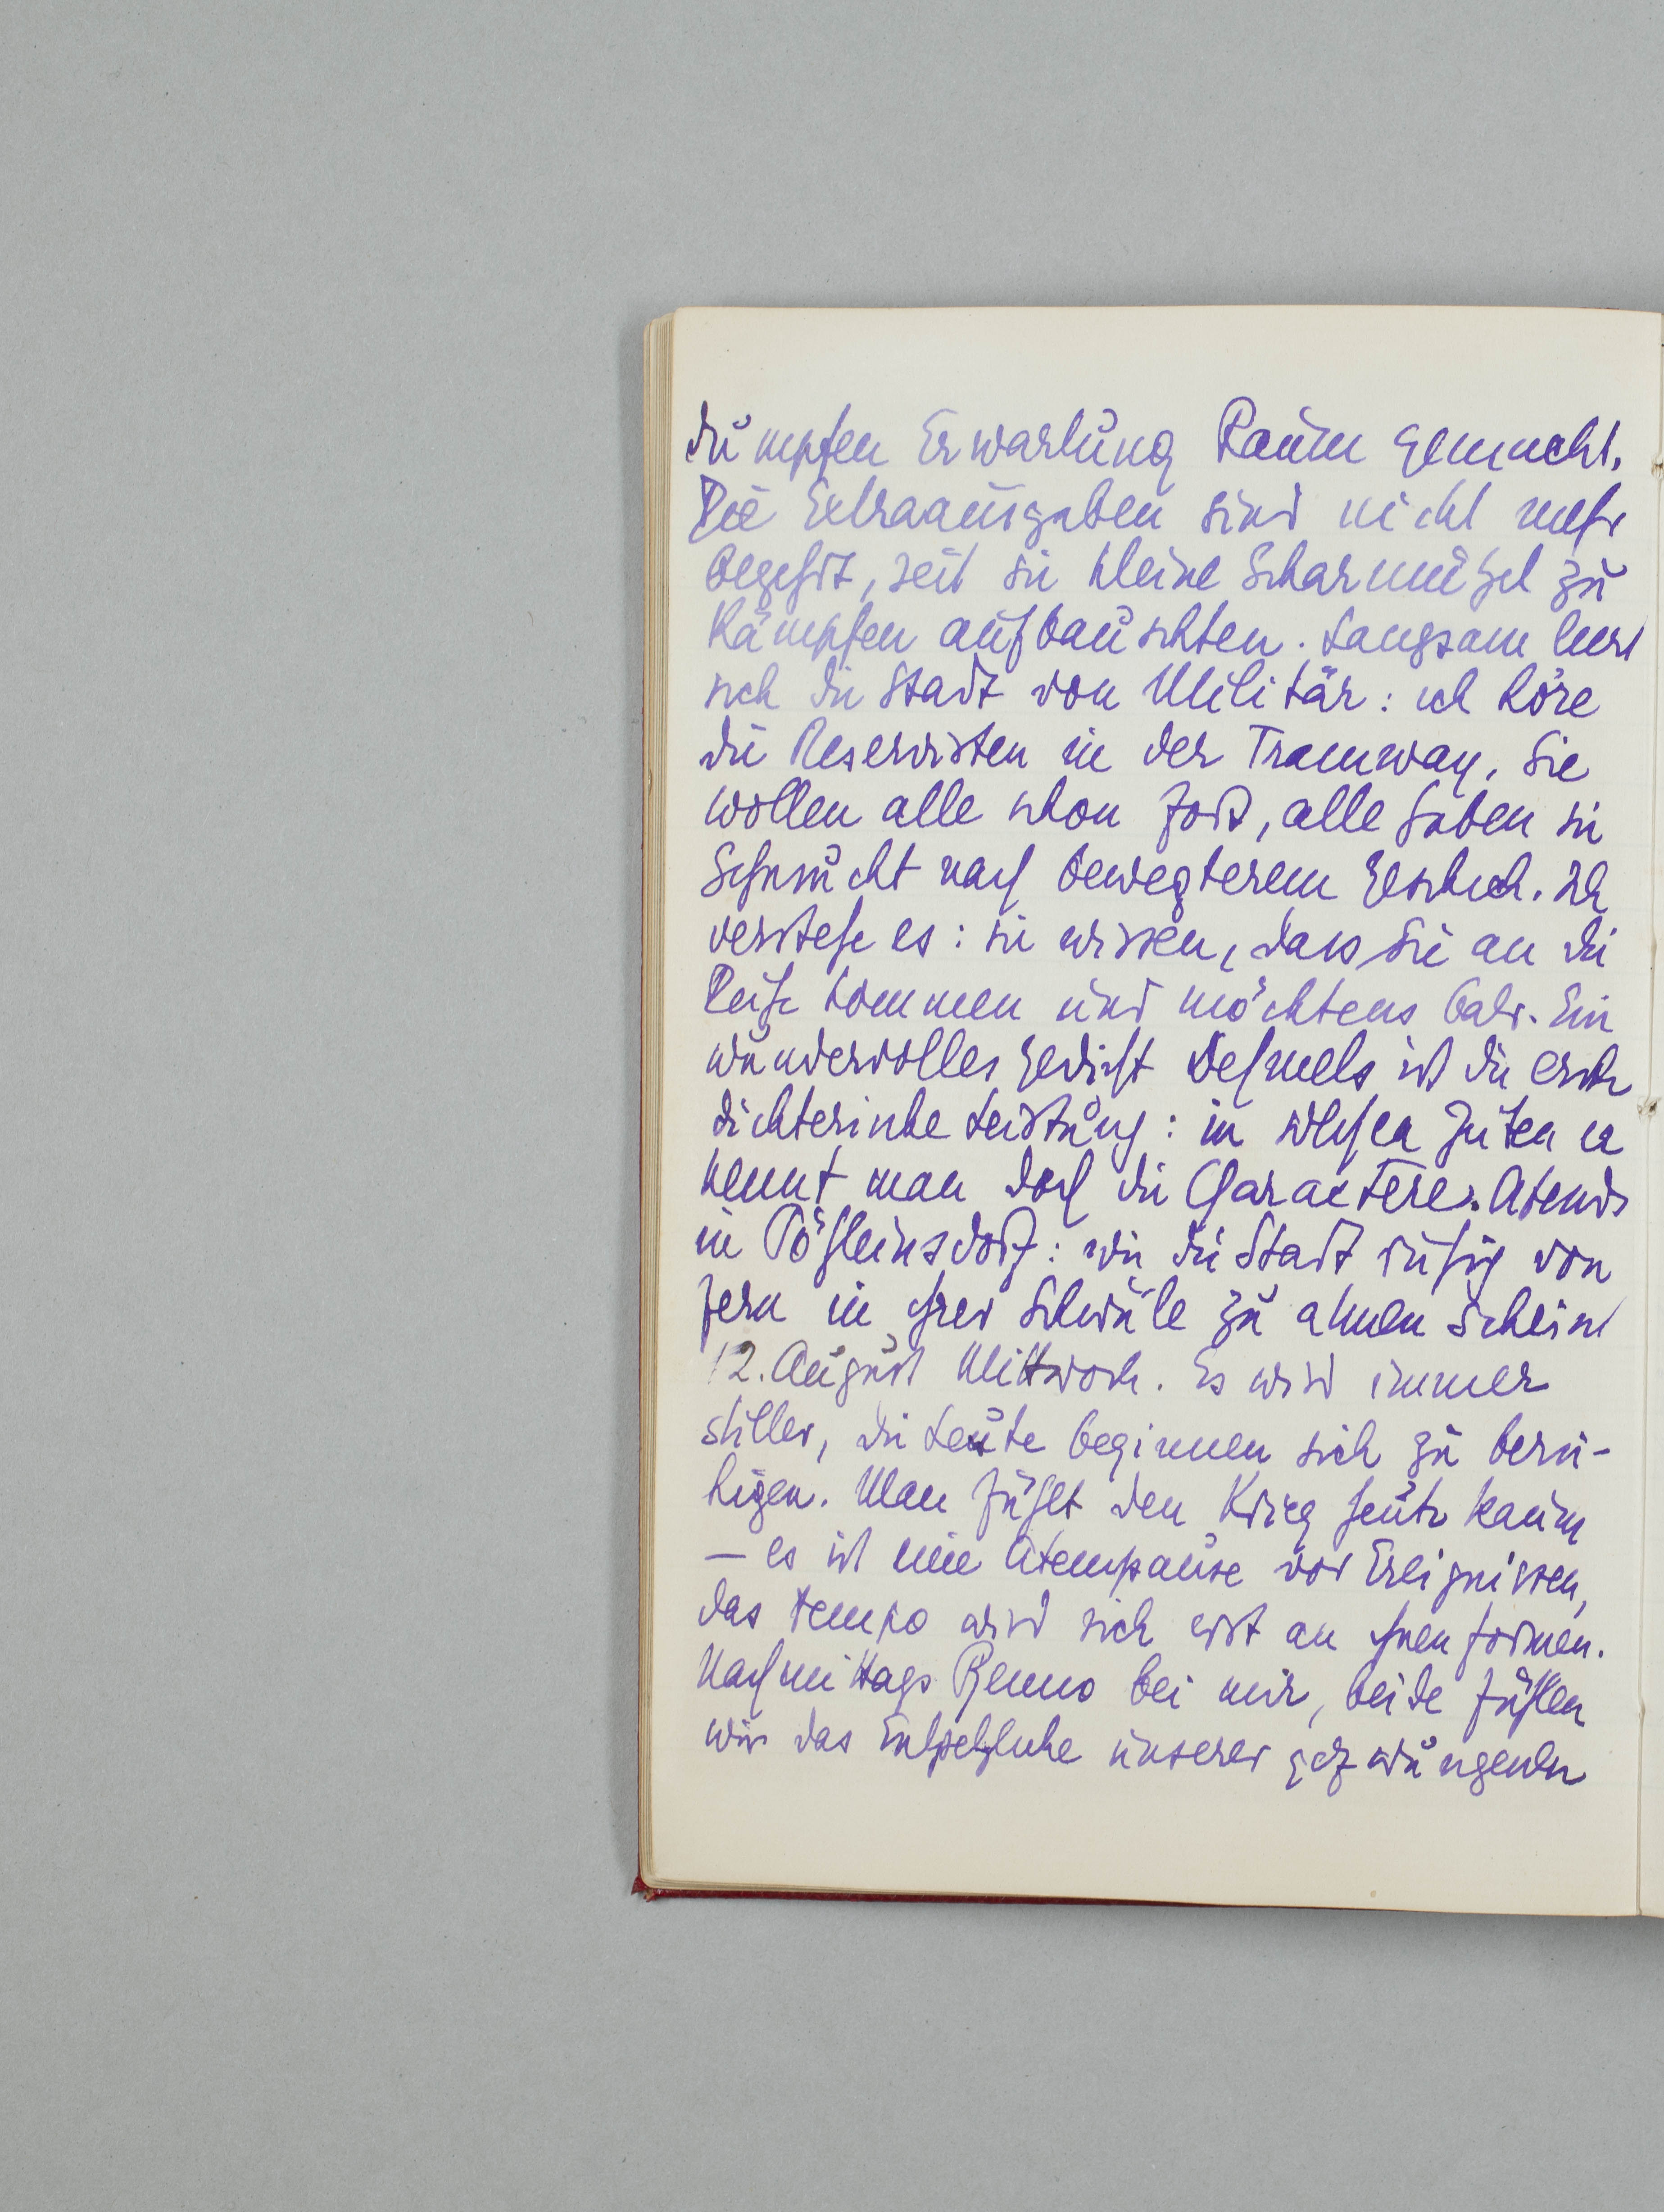 dumpfen Erwartung Raum gemacht.
Die Extraausgaben sind nicht mehr
begehrt, seit sie kleine Scharmützel zu
Kämpfen aufbauschten. Langsam leert
sich die Stadt von Militär: ich höre
die Reservisten in der Tramway. Sie
wollen alle schon fort, alle haben sie
Sehnsucht nach bewegterem Geschick. Ich
verstehe es: sie wissen, dass sie an die
Reihe kommen und möchtens bald. Ein
wundervolles Gedicht Dehmels ist die erste
dichterische Leistung: in solchen Zeiten er
kennt man doch die Charactere. Abends
in Pötzleinsdorf: wie die Stadt ruhig von
fern in ihrer Schwüle zu atmen scheint
12. August Mittwoch. Es wird immer
stiller, die Leute beginnen sich zu beru-
higen. Man fühlt den Krieg heute kaum
– es ist eine Atempause vor Ereignissen,
das Tempo wird sich erst an ihnen formen.
Nachmittags Benno bei mir, beide fühlen
wir das Entsetzliche unserer gezwungenen